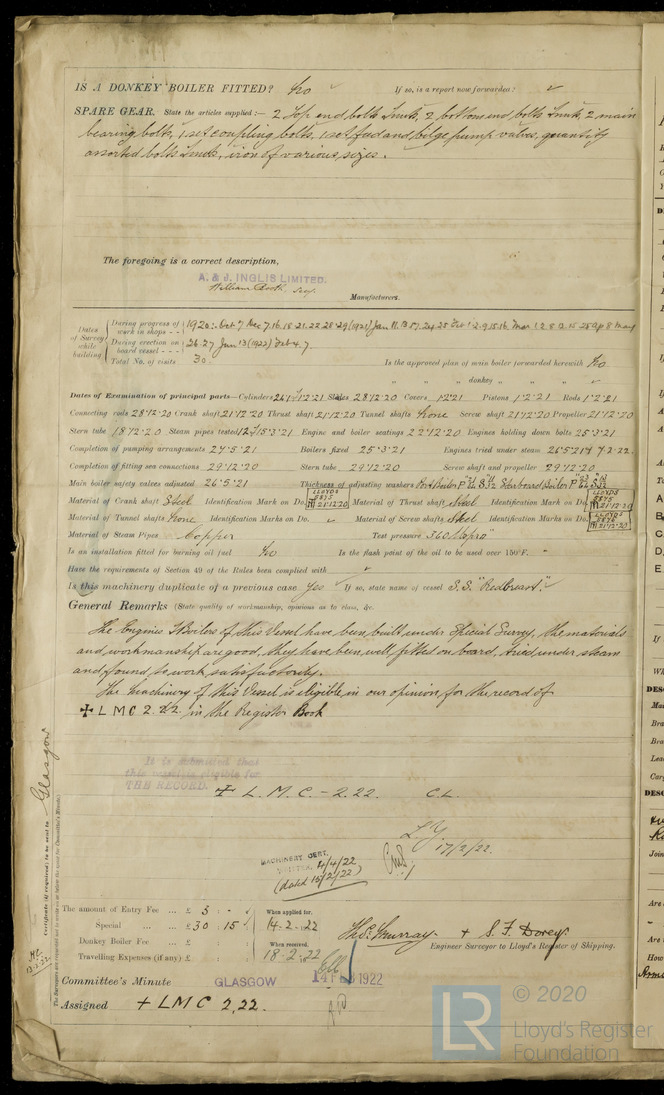 IS A DONKEY BOILER FITTED? No If so, is a report now forwarded?
SPARE GEAR. State the articles supplied:— 2 top end bolts & nuts, 2 bottom end bolts & nuts, 2 main
bearing bolts, 1 set coupling bolts, 1 set feed and bilge pump valves, quantity
assorted bolts & nuts, iron of various sizes.
The foregoing is a correct description,
A. & J. INGLIS LIMITED.
William Manufacturers.
Dates of Survey while building
During progress of work in shops - - 1920: Oct 7 Dec 7. 16. 18. 21. 22. 28. 29 (1921) Jan 11. 24. 25 Feb 1. 2. 9. 15. 16. Mar 1. 2. 8. 12. 15. 25 Ap 8 May
During erection on board vessel - - - 26. 27 Jun 13 (1922) Feb 4. 7.
Total No. of visits 30. Is the approved plan of main boiler forwarded herewith No
" " " donkey " " "
Dates of Examination of principal parts—Cylinders Slides 28.12.20 Covers 1.2.21 Pistons 1.2.21 Rods 1.2.21
Connecting rods 28.12.20 Crank shaft 21.12.20 Thrust shaft 21.12.20 Tunnel shafts None Screw shaft 21.12.20 Propeller 21.12.20
Stern tube 18.12.20 Steam pipes tested 15.3.21 Engine and boiler seatings 22.12.20 Engines holding down bolts 25.3.21
Completion of pumping arrangements 27.5.21 Boilers fixed 25.3.21 Engines tried under steam 26.5.21 & 7.2.22.
Completion of fitting sea connections 29.12.20 Stern tube 29.12.20 Screw shaft and propeller 29.12.20
Main boiler safety valves adjusted 26.5.21 Thickness of adjusting washers Port Boiler Starboard Boiler
Material of Crank shaft Steel Identification Mark on Do. LLOYDS 5815 21.12.20 Material of Thrust shaft Steel Identification Mark on Do. LLOYDS 5875 21.12.20
Material of Tunnel shafts None Identification Marks on Do. Material of Screw shafts Steel Identification Marks on Do. LLOYDS 5876 21.12.20
Material of Steam Pipes Copper Test pressure 360 lbs pr □"
Is an installation fitted for burning oil fuel No Is the flash point of the oil to be used over 150°F. -
Have the requirements of Section 49 of the Rules been complied with
Is this machinery duplicate of a previous case Yes If so, state name of vessel S.S. "Redbreast".
General Remarks (State quality of workmanship, opinions as to class, &c.
The Engines & Boilers of this Vessel have been built under Special Survey, the materials
and workmanship are good, they have been well fitted on board, tried under steam
and found to work satisfactorily.
The machinery of this Vessel is eligible in our opinion for the record of
✠ L M C 2.22. in the Register Book
It is submitted that
this vessel is eligible for
THE RECORD. ✠ L. M. C. - 2.22. C.L.
17/2/22.
MACHINERY CERT.
WRITTEN 4/4/22
(dated 15/2/22)
Certificate (if required) to be sent to Glasgow
The amount of Entry Fee ... £ 3 : - : When applied for,
Special ... ... £ 30 : 15 : 14.2.22
Donkey Boiler Fee ... £ : : When received,
Travelling Expenses (if any) £ : : 18.2.22
Thos. Murray. + S. F. Dorey.
Engineer Surveyor to Lloyd's Register of Shipping.
Committee's Minute GLASGOW 14 FEB 1922
Assigned + L M C 2,22.
LR © 2020
Lloyd's Register
Foundation